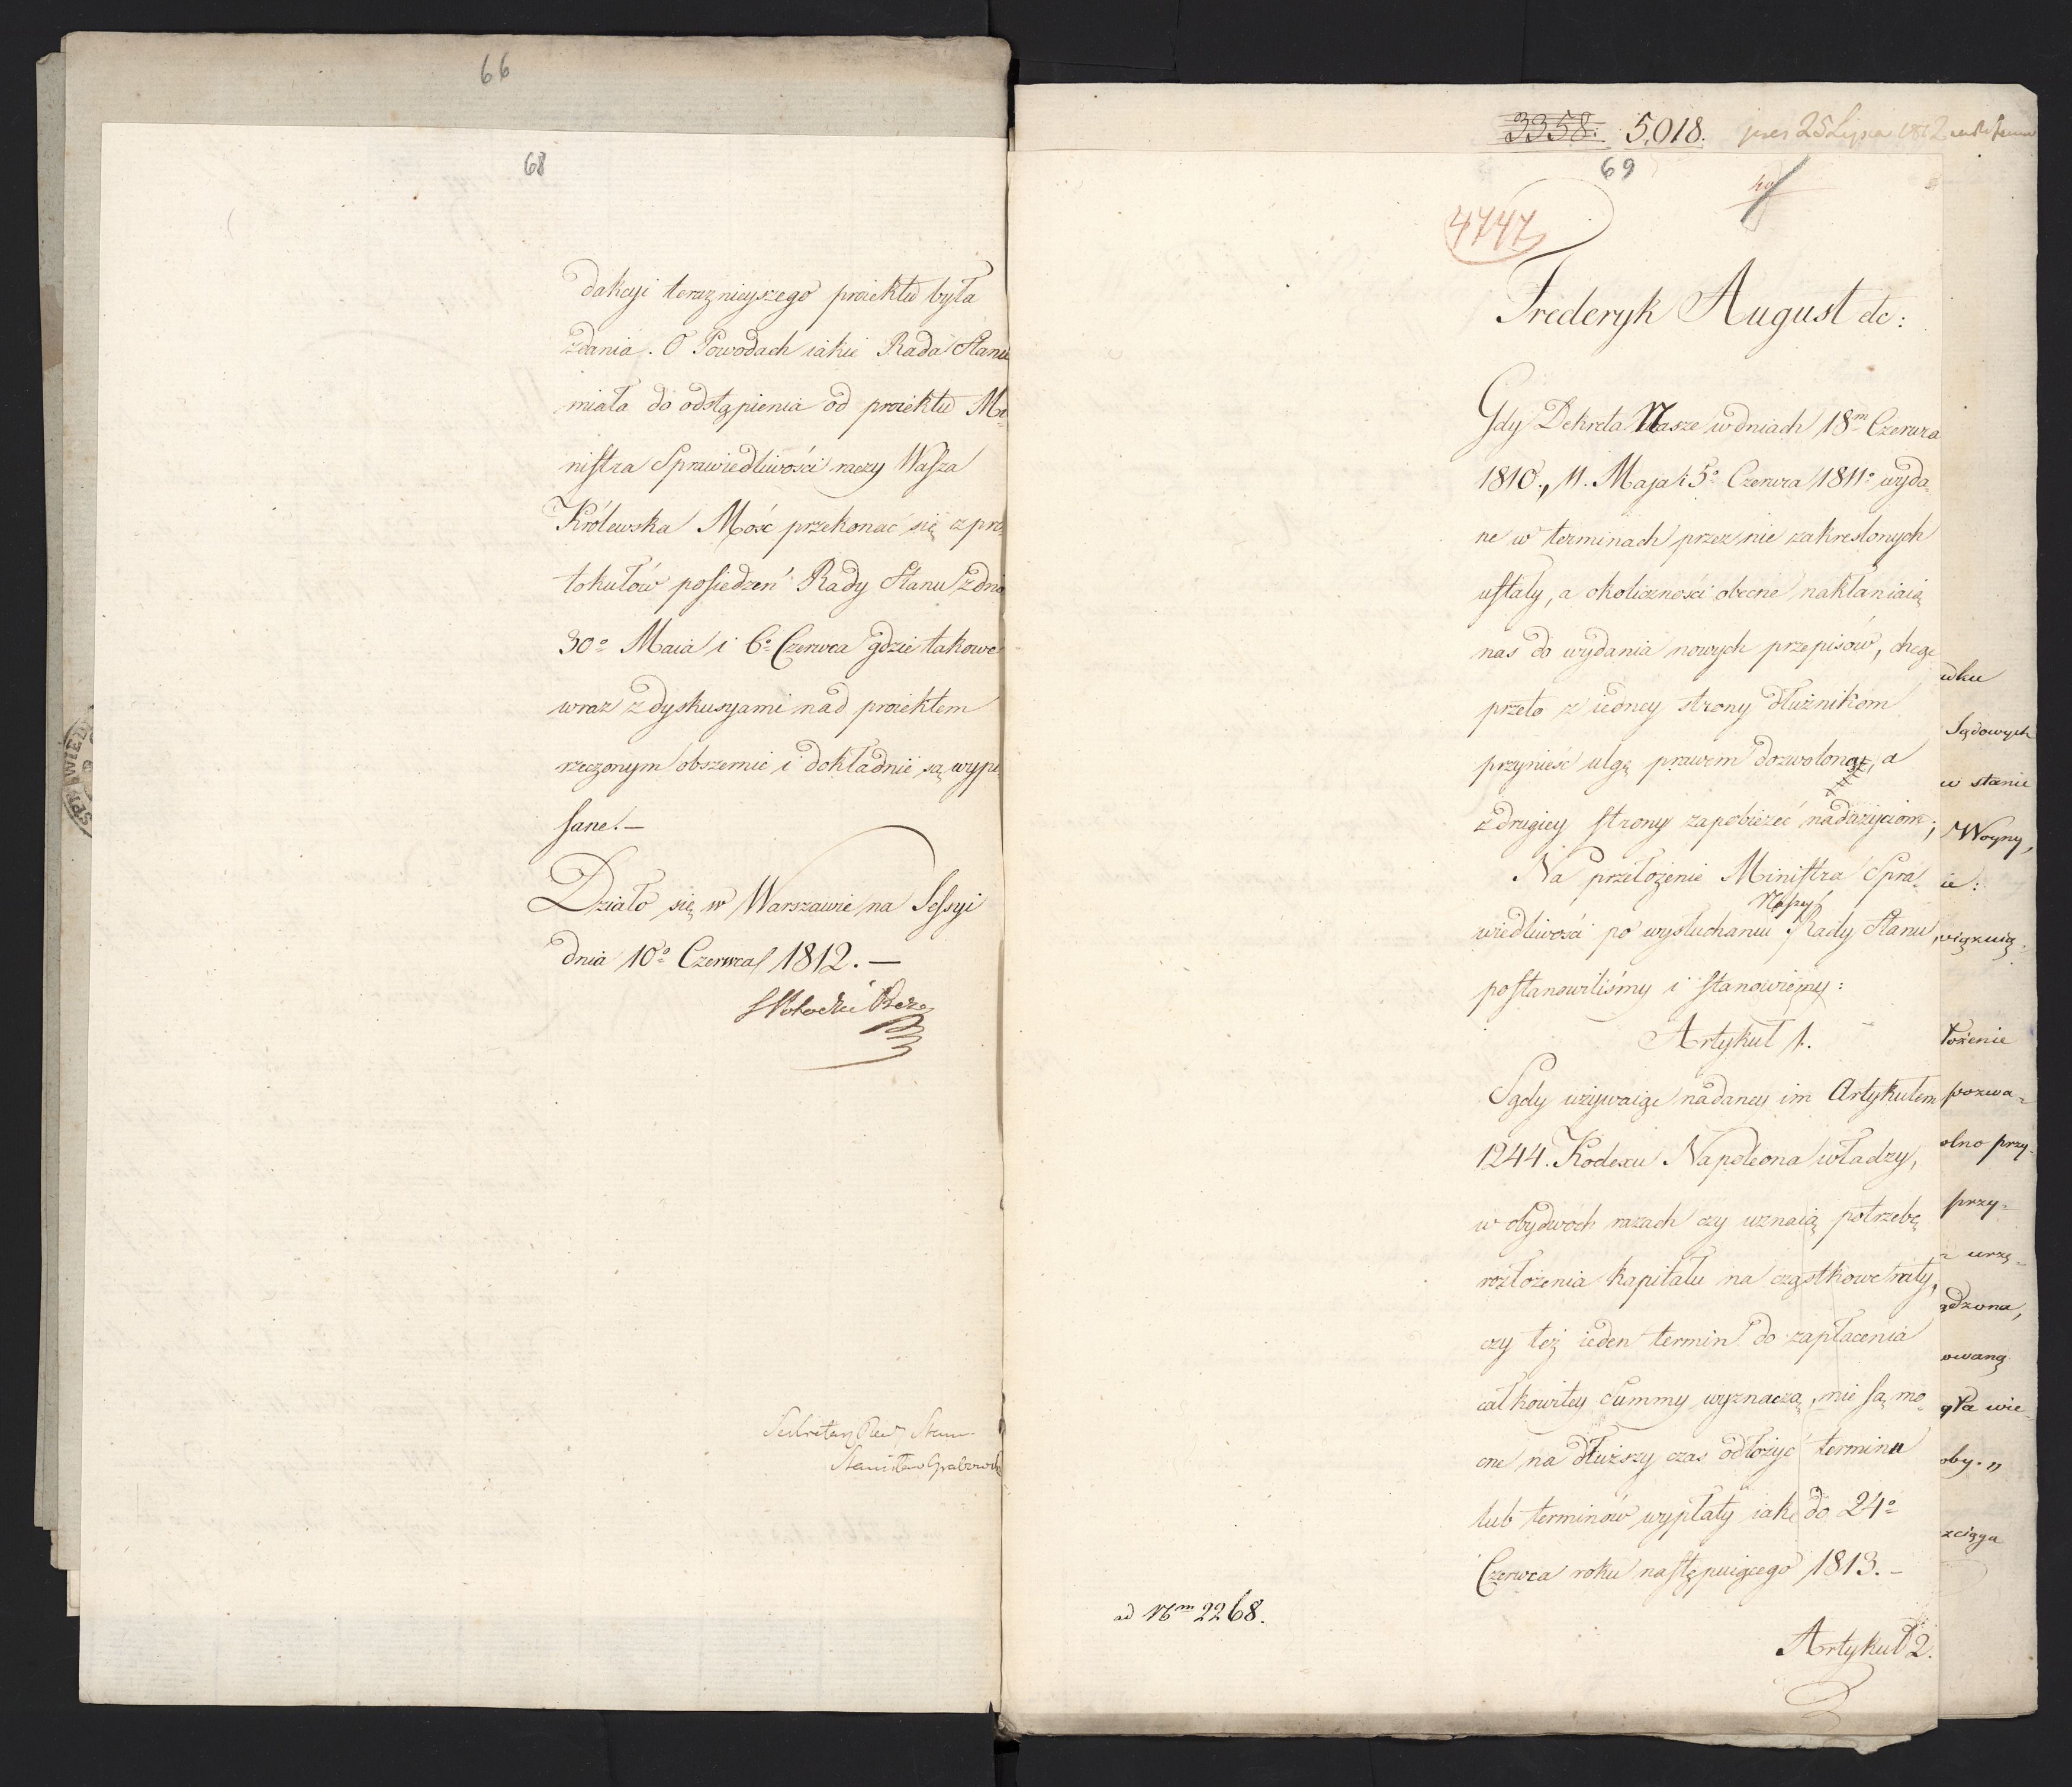 66
68
dakcyi teraznieyszego proiektu była
zdania. O Powodach iakie Rada Stanu
miała do odstąpienia od proiektu Mi=
nistra Sprawiedliwości raczy Wasza
Królewska Mość przekonać się z pro
tokułów posiedzeń Rady Stanu z dnia
30° Maia i 6° Czerwca gdzie takowe
wraz z dyskusyami nad proiektem
rzeczonym obszernie i dokładnie są wypi
sane. —
Działo się w Warszawie na Sessyi
dnia 10° Czerwca 1812. —
Sekretarz Rady Stanu
Stanisław Grabowski
3358. 5,018. pres 25 Lipca 1812
69
4747
Frederyk August etc:
Gdy Dekreta Nasze w dniach 18m Czerwca
1810., 11. Maja i 5° Czerwca 1811° wyda=
ne w terminach przez nie zakreslonych
ustały, a okoliczności obecne nakłaniaią
nas do wydania nowych przepisów, chcąc
przeto z iedney strony dłużnikom
przynieść ulgę prawem dozwoloną, a
z drugiey strony zapobieżeć nadużyciom;
Na przełożenie Ministra Spra=
wiedliwości po wysłuchaniu Naszey Rady Stanu,
postanowiliśmy i stanowiemy:
Artykuł 1.
Sędy używaiąc nadaney im Artykułem
1244. Kodexu Napoleona władzy,
w obydwoch razach czy uznaią potrzebę
rozłożenia kapitału na cząstkowe raty,
czy też ieden termin do zapłacenia
całkowitey summy wyznaczą, nie są mo=
cne na dłuższy czas odłożyć terminu
lub terminów wypłaty iak do 24°
Czerwca roku następuiącego 1813. —
ad Nm 2268.
Artykuł 2.
wku
Sądowych
w stanie
Woyny,
ie:
wiązuią
łożenie
pozwa=
olno przy=
przy=
urzę=
adzona,
owaną
ęła wie=
oby.
zciąga